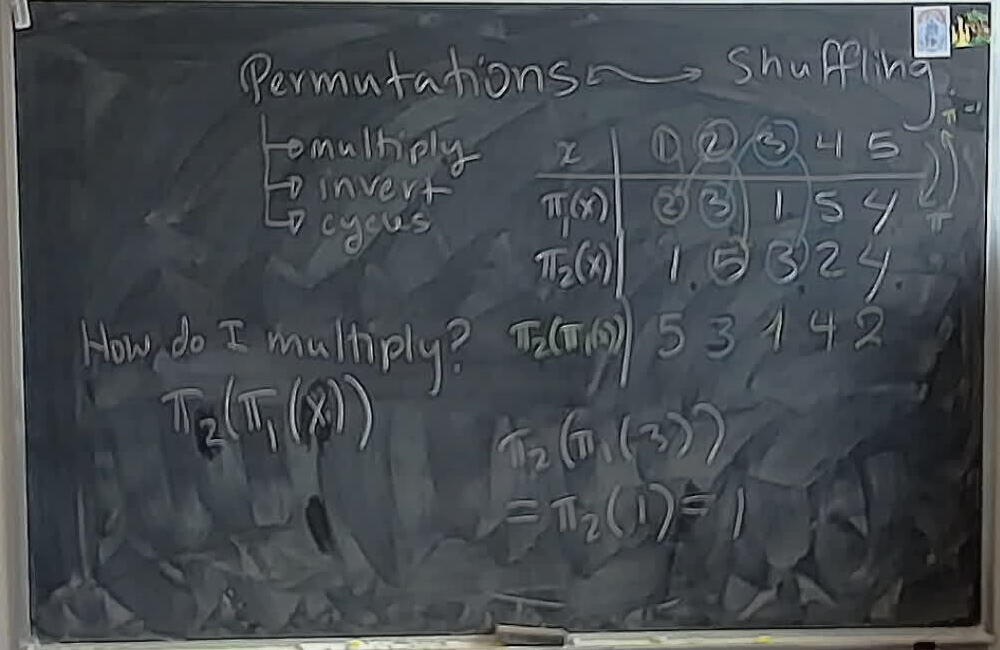 Permutations ⟷ Shuffling
→ multiply
→ invert
→ cycles
x | 1 2 3 4 5
π₁(x) | 2 3 1 5 4
π₂(x) | 1 5 3 2 4
π₂(π₁(x)) | 5 3 1 4 2
π⁻¹
π
How do I multiply?
π₂(π₁(x))
π₂(π₁(3))
= π₂(1) = 1